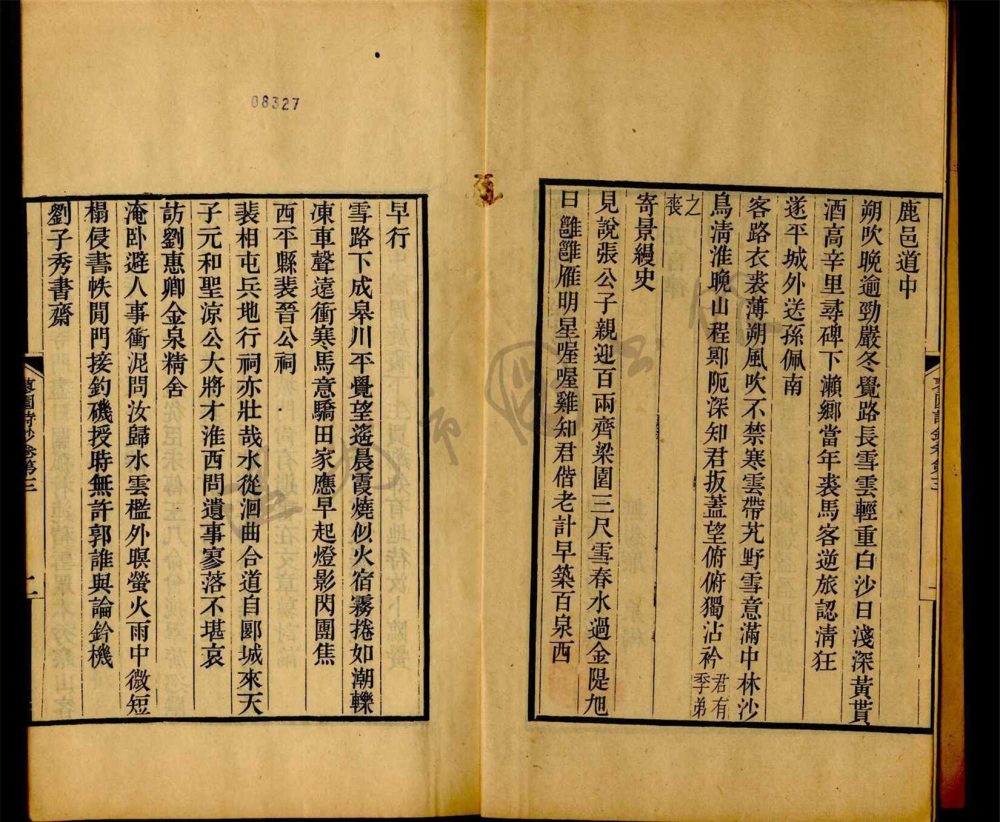 鹿邑道中
朔吹晚逾勁嚴冬覺路長雪雲輕重白沙日淺深黃貰
酒高辛里尋碑下瀨鄉當年裘馬客逆旅認清狂
遂平城外送孫佩南
客路衣裘薄朔風吹不禁寒雲帶艽野雪意滿中林沙
鳥清淮晚山程鄳阨深知君扳蓋望俯俯獨沾衿君有季弟
之喪
寄景縵史
見說張公子親迎百兩齊梁園三尺雪春水過金隄旭
日雝雝雁明星喔喔雞知君偕老計早築百泉西
08327
早行
雪路下成皋川平覺望遙晨霞燒似火宿霧捲如潮轢
凍車聲遠衝寒馬意驕田家應早起燈影閃團焦
西平縣裴晉公祠
裴相屯兵地行祠亦壯哉水從洄曲合道自郾城來天
子元和聖涼公大將才淮西問遺事寥落不堪哀
訪劉惠卿金泉精舍
淹臥避人事衝泥問汝歸水雲檻外暝螢火雨中微短
榻侵書帙閒門接釣磯授時無許郭誰與論鈐機
劉子秀書齋
詩鈔卷第三
二